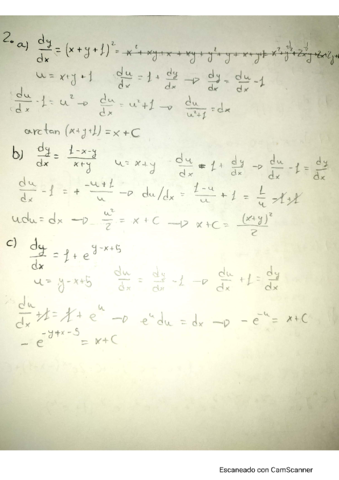 2. a) dy/dx = (x+y+1)² =
u = x+y+1 du/dx = 1 + dy/dx → dy/dx = du/dx - 1
du/dx - 1 = u² → du/dx = u²+1 → du/u²+1 = dx
arctan (x+y+1) = x+C
b) dy/dx = 1-x-y/x+y u = x+y du/dx = 1 + dy/dx → du/dx - 1 = dy/dx
du/dx - 1 = + -u+1/u → du/dx = 1-u/u + 1 = 1/u - 1 + 1
udu = dx → u²/2 = x+C → x+C = (x+y)²/2
c) dy/dx = 1 + e^(y-x+5)
u = y-x+5 du/dx = dy/dx - 1 → du/dx + 1 = dy/dx
du/dx + 1 = 1 + e^u → e^u du = dx → -e^(-u) = x+C
-e^(-y+x-5) = x+C
Escaneado con CamScanner